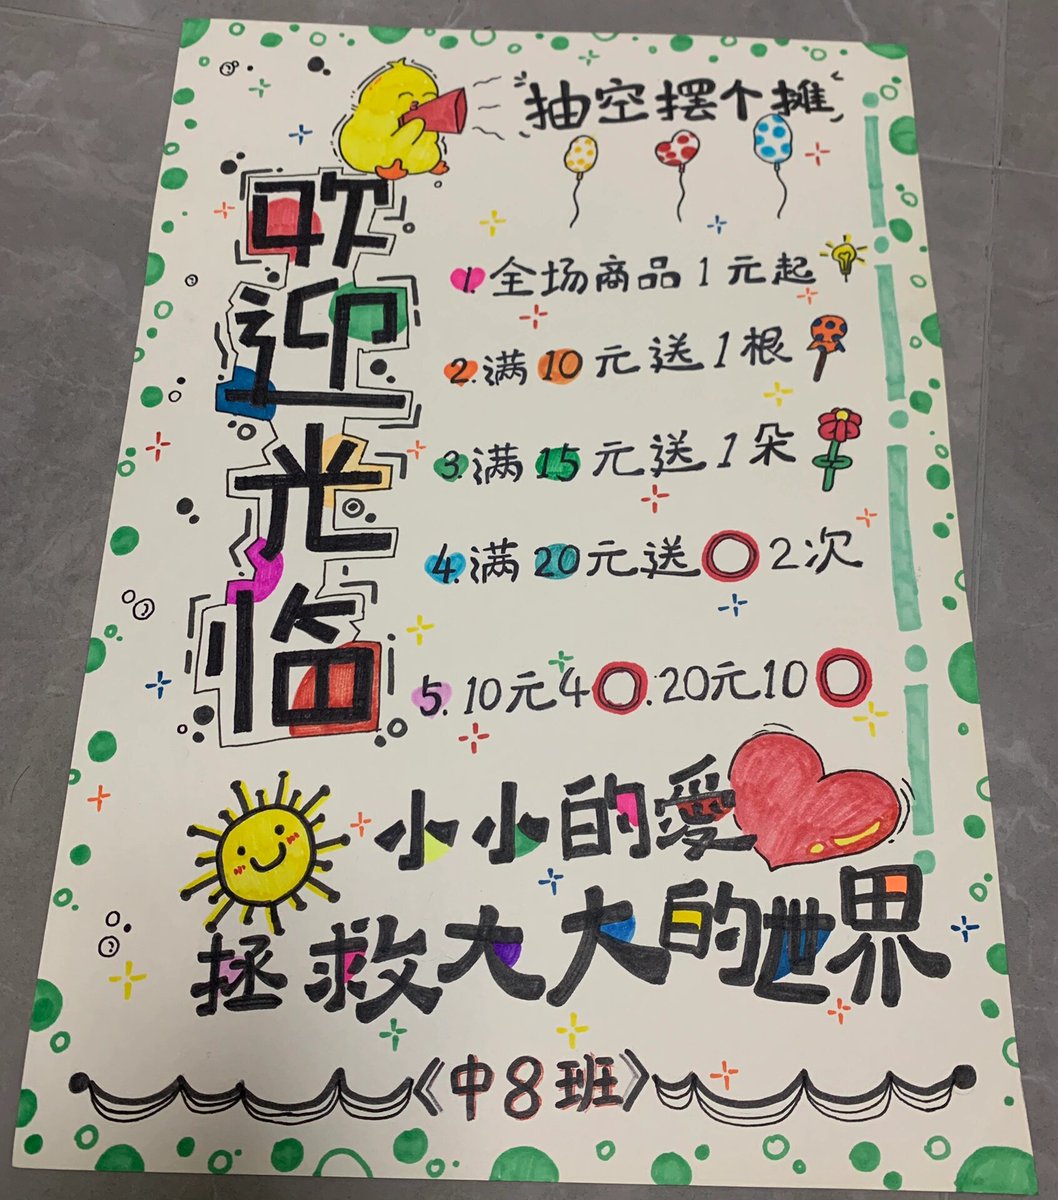 "抽空摆个摊"
欢迎光临
1.全场商品1元起
2.满10元送1根
3.满15元送1朵
4.满20元送○2次
5.10元4○.20元10○
小小的愛
拯救大大的世界
《中8班》